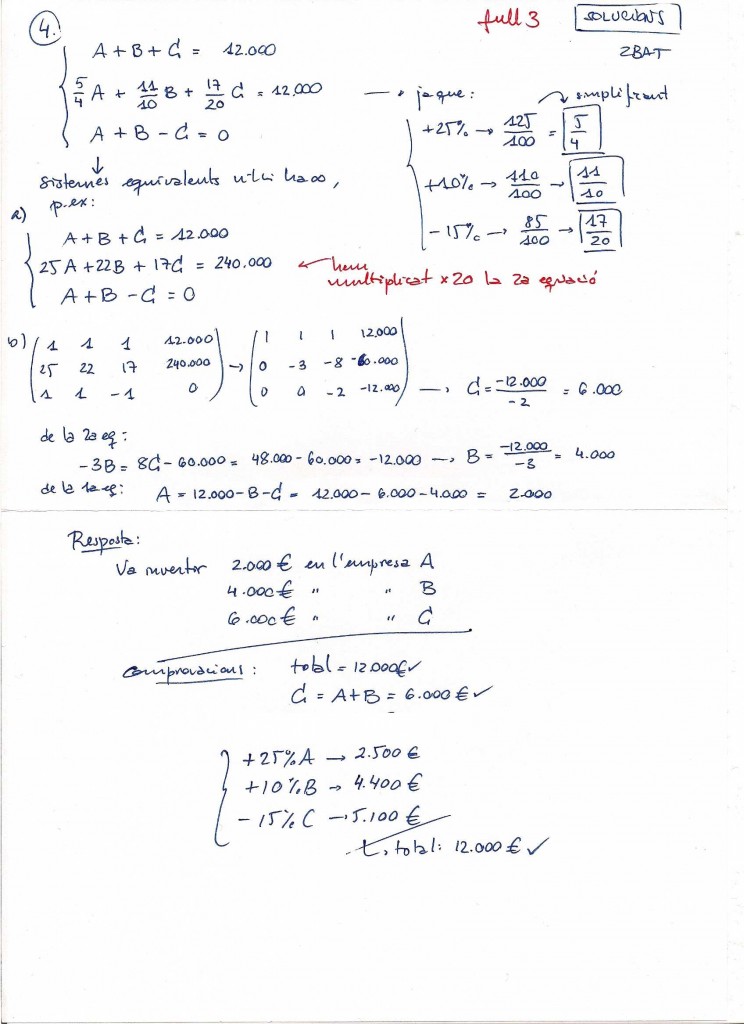 full 3 SOLUCIONS
2BAT
4.
A + B + C = 12.000
5/4 A + 11/10 B + 17/20 C = 12.000 → ja que: simplificant
A + B - C = 0
+25% → 125/100 = 5/4
+10% → 110/100 → 11/10
-15% → 85/100 → 17/20
↓
Sistemes equivalents
p.ex:
a)
A + B + C = 12.000
25A + 22B + 17C = 240.000 ← hem multiplicat ×20 la 2a equació
A + B - C = 0
b)
( 1 1 1 12.000 ) → ( 1 1 1 12.000 )
( 25 22 17 240.000 ) ( 0 -3 -8 -60.000 )
( 1 1 -1 0 ) ( 0 0 -2 -12.000 ) → C = -12.000/-2 = 6.000
de la 2a eq:
-3B = 8C - 60.000 = 48.000 - 60.000 = -12.000 → B = -12.000/-3 = 4.000
de la 1a eq: A = 12.000 - B - C = 12.000 - 6.000 - 4.000 = 2.000
Resposta:
Va invertir 2.000 € en l'empresa A
4.000 € " " B
6.000 € " " C
comprovacions: total = 12.000€ ✓
C = A + B = 6.000 € ✓
+25% A → 2.500 €
+10% B → 4.400 €
-15% C → 5.100 €
total: 12.000 € ✓